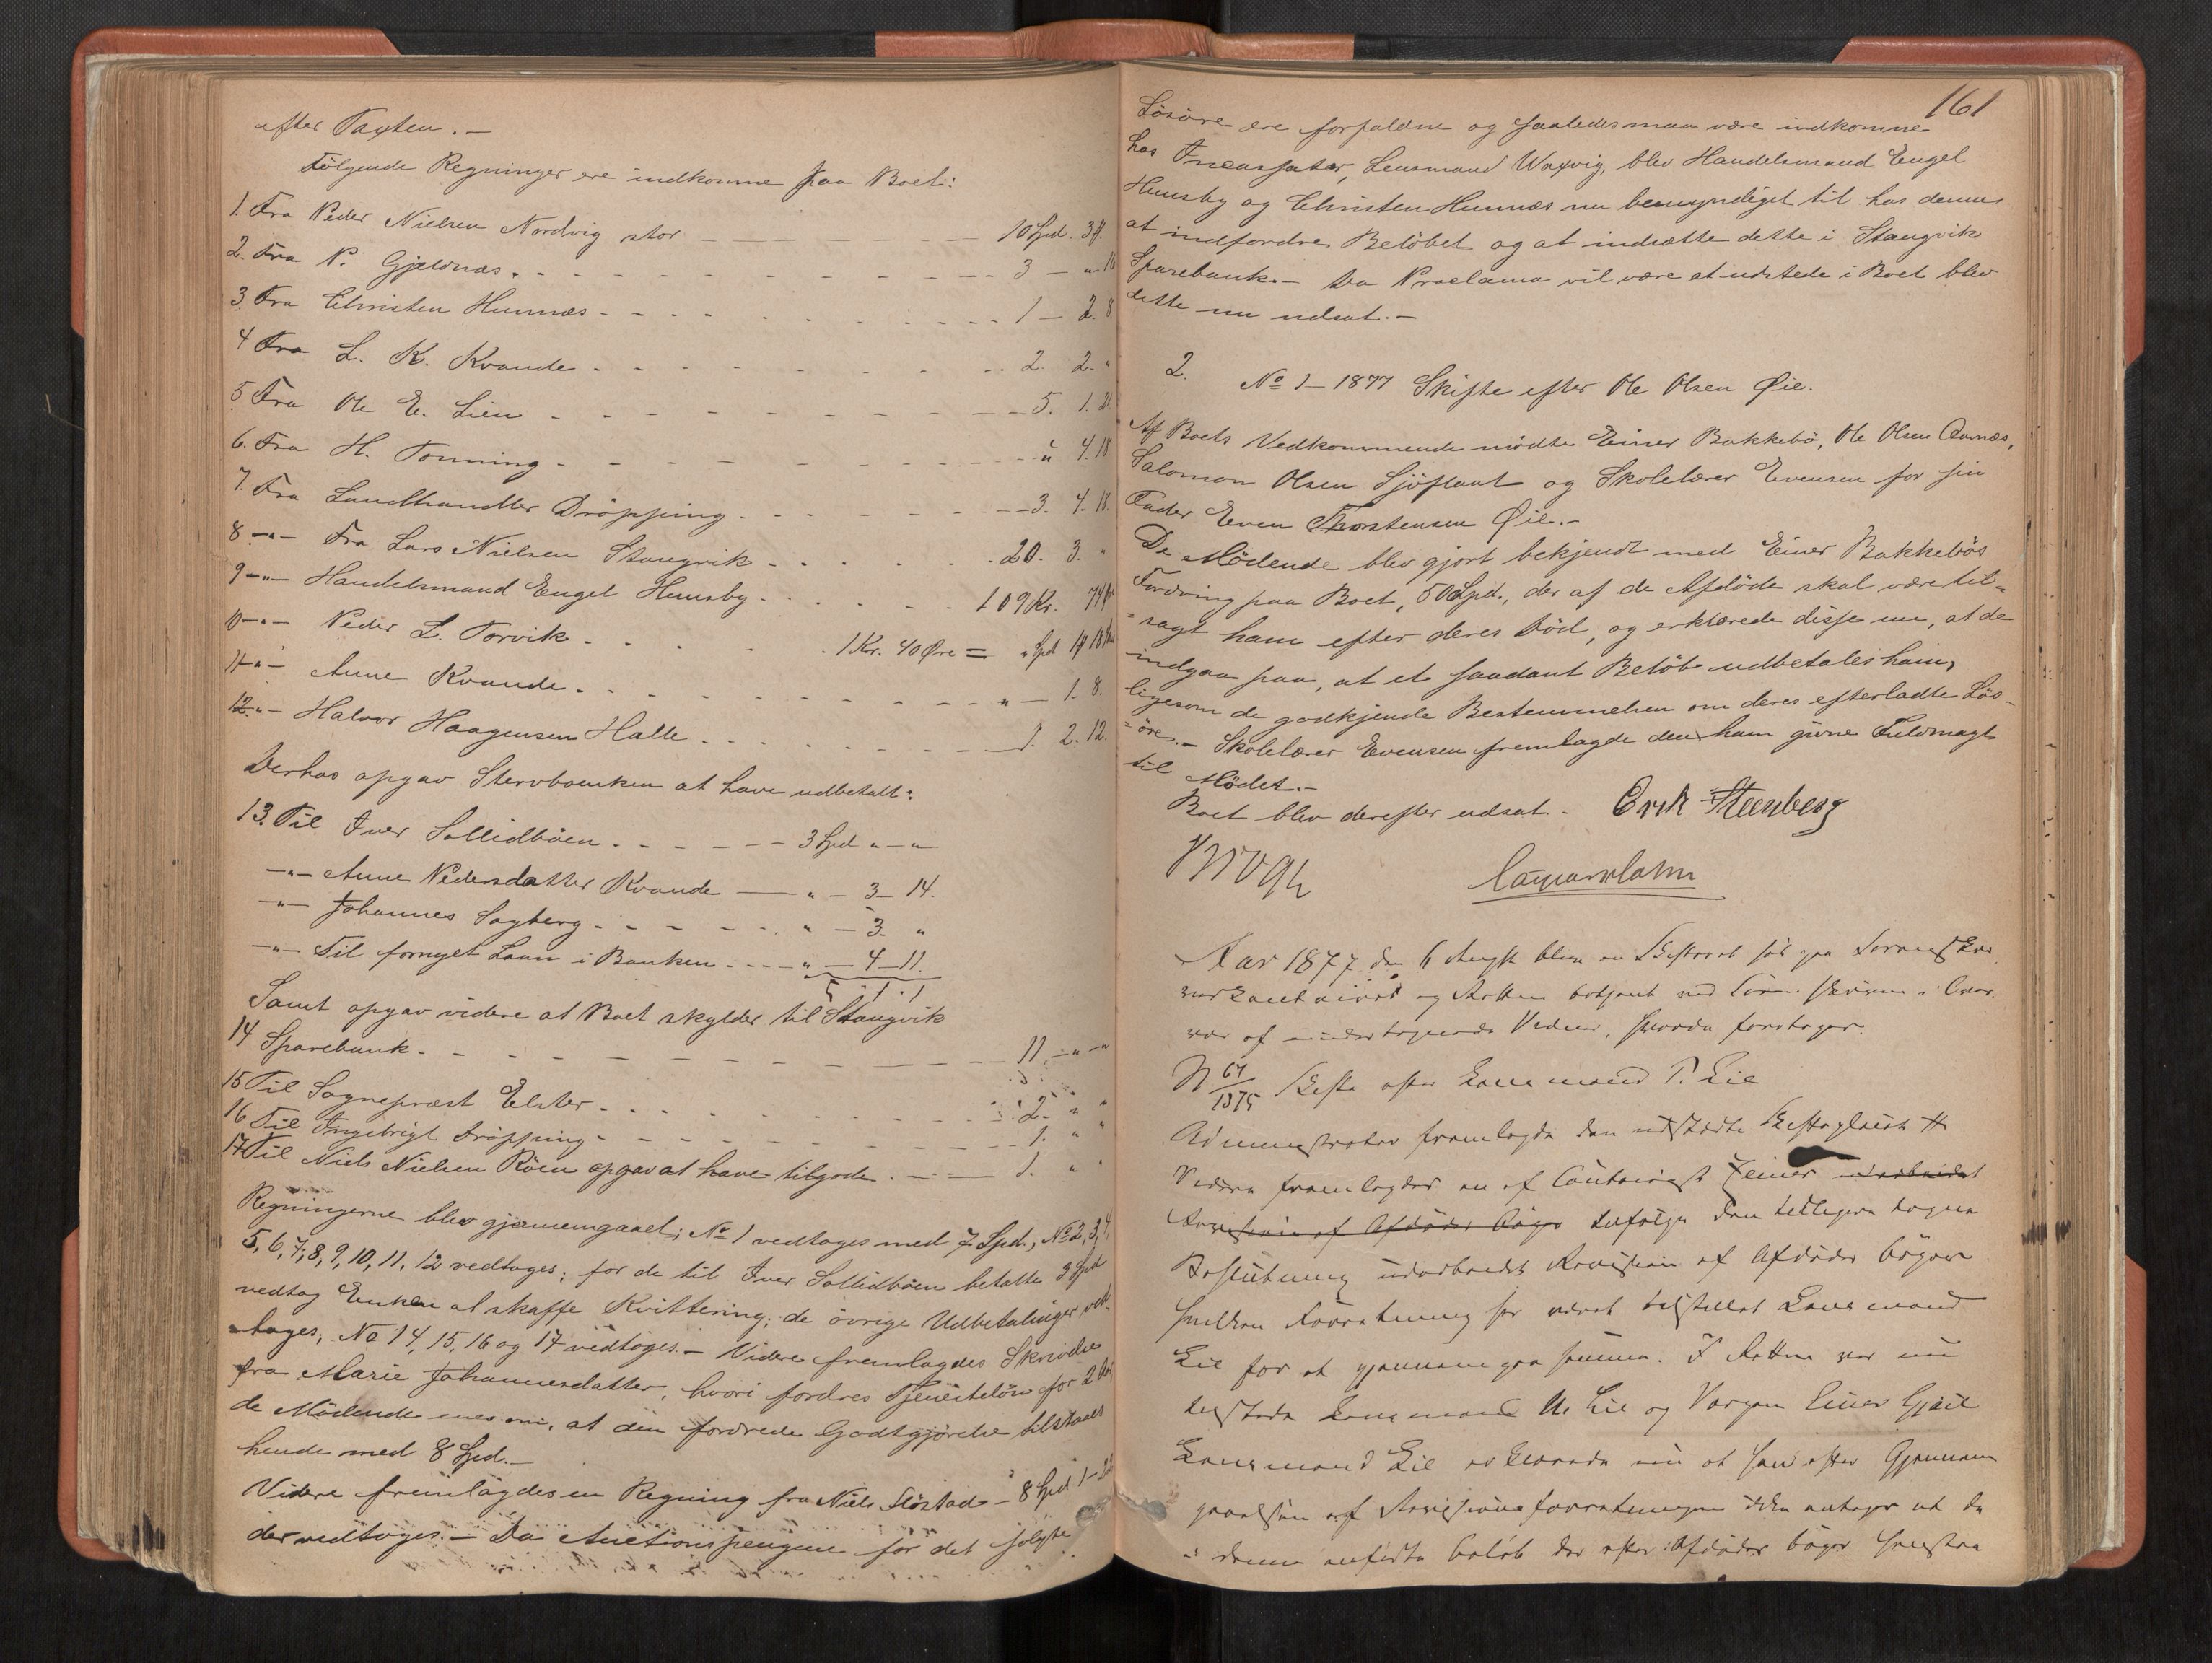 efter Taxten. —
Følgende Regninger ere indkomne paa Boet:
1. Fra Peder Nielsen Nordvig stor — — — 10 Spd. 3
2. Fra P. Gjeldnæs. - - - 3 — " 16
3 Fra Christen Hunnæs - - - 1 — 2. 8
4 Fra L. K. Kvande - - - 2. 2. "
5 Fra Ole E. Lien - - - 5. 1. 21
6. Fra H. Tonning - - - " 4. 18
7. Fra Landhandler Drøpping - - - 3. 4. 18.
8 —"— Fra Lars Nielsen Stangvik - - - 20. 3. "
9 —"— Handelsmand Engel Hunsby - - - 109 Kr. 74
10 —"— Peder L. Torvik - - . 1 Kr. 40 Øre = " Spd
11 —"— Anne Kvande - - - " — 1. 8.
12. —"— Halvor Haagensen Halle - - - 1. 2. 12.
Derhos opgav Stervboenken at have udbetalt:
13. Til Iver Sollidbøen - - - 3 Spd " — "
—"— Anne Pedersdatter Kvande — " — 3 — 14.
—"— Johannes Sagberg - - - " — 3. "
—"— Til fornyet Laan i Banken - - - " — 4 — 11.
5. 1. 1
Samt opgav videre at Boet skylder til Stangvik
14 Sparebank - - - 11 — " — "
15 Til Sogneprest Elster - - - 2. " "
16 Til Ingebrigt Drøpping - - - 1. " "
17 Til Niels Nielsen Røen opgav at have tilgode - — 1. " "
Regningerne blev gjennemgaaet; No 1 vedtages med 7 Spd., No 2, 3, 4,
5, 6, 7, 8, 9, 10, 11, 12 vedtages; for de til Iver Sollidbøen betalte 3 Spd
vedtog Enken at skaffe Kvittering; de øvrige Udbetalinger ved-
tages; No 14, 15, 16 og 17 vedtoges. — Videre fremlagdes Skrivelse
fra Marie Johannesdatter, hvori fordres Tjenesteløn for 2
de Mødende enes om, at den fordrede Godtgjørelse tilstaaes
hende med 8 Spd. —
Videre fremlagdes en Regning fra Niels Flöstad — 8 Spd 1 —
der vedtoges. — Da Auctionspengene for det solgte
161
Løsøre ere forfaldne og saaledes maa være indkomne
hos Incassator, Lensmand Waxvig, blev Handelsmand Engel
Hunsby og Christen Hunnæs nu bemyndiget til hos denne
at indfordre Beløbet og at indsætte dette i Stangvik
Sparebank. — Da Proclama vil være at udstede i Boet blev
dette nu udsat. —
2. No 1 — 1877 Skifte efter Ole Olsen Øie.
Af Boets Vedkommende mødte Einer Bakkebø, Ole Olsen
Salomon Olsen Sjøflaat og Skolelærer Evensen for sin
Fader Even Thorstensen Øie. —
De Mødende blev gjort bekjendt med Einer Bakkebøs
Fordring paa Boet, 50 Spd., der af de Afdøde skal være til-
sagt ham efter deres Død, og erklærede disse nu, at de
indgaa paa, at et saadant Beløb udbetales ham,
ligesom de godkjende Bestemmelsen om deres efterladte Løs-
øre. — Skolelærer Evensen fremlagde den ham givne Fuldmagt
til Mødet. —
Boet blev derefter udsat. Erik Steenberg
Aar 1877 den 6 August blev en Skifteret sat paa Sorenskri
verkontoiret og Retten betjent ved
var af undertegnede Vidner, hvorda foretages.
N 64/1875 Skifte efter Lensmand P. Lie
Administrator fremlagde den udstedte Skifte
Videre fremlagdes en af Contoirist
Revision af Afdødes Bøger ifølge den tidligere tagne
Beslutning udarbeidet Revision af Afdødes bøger
hvilken Forretning har været tilstillet Lensmand
Lie for at gjennemgaa samme. I Retten var nu
tilstede Lensmand Lie og Værgen Einer Gjeil
Lensmand Lie erklærede nu at han efter Gjennem
gaaelsen af Revisionsforretningen ikke antager at de
i denne anførte beløb der efter Afdødes bøger